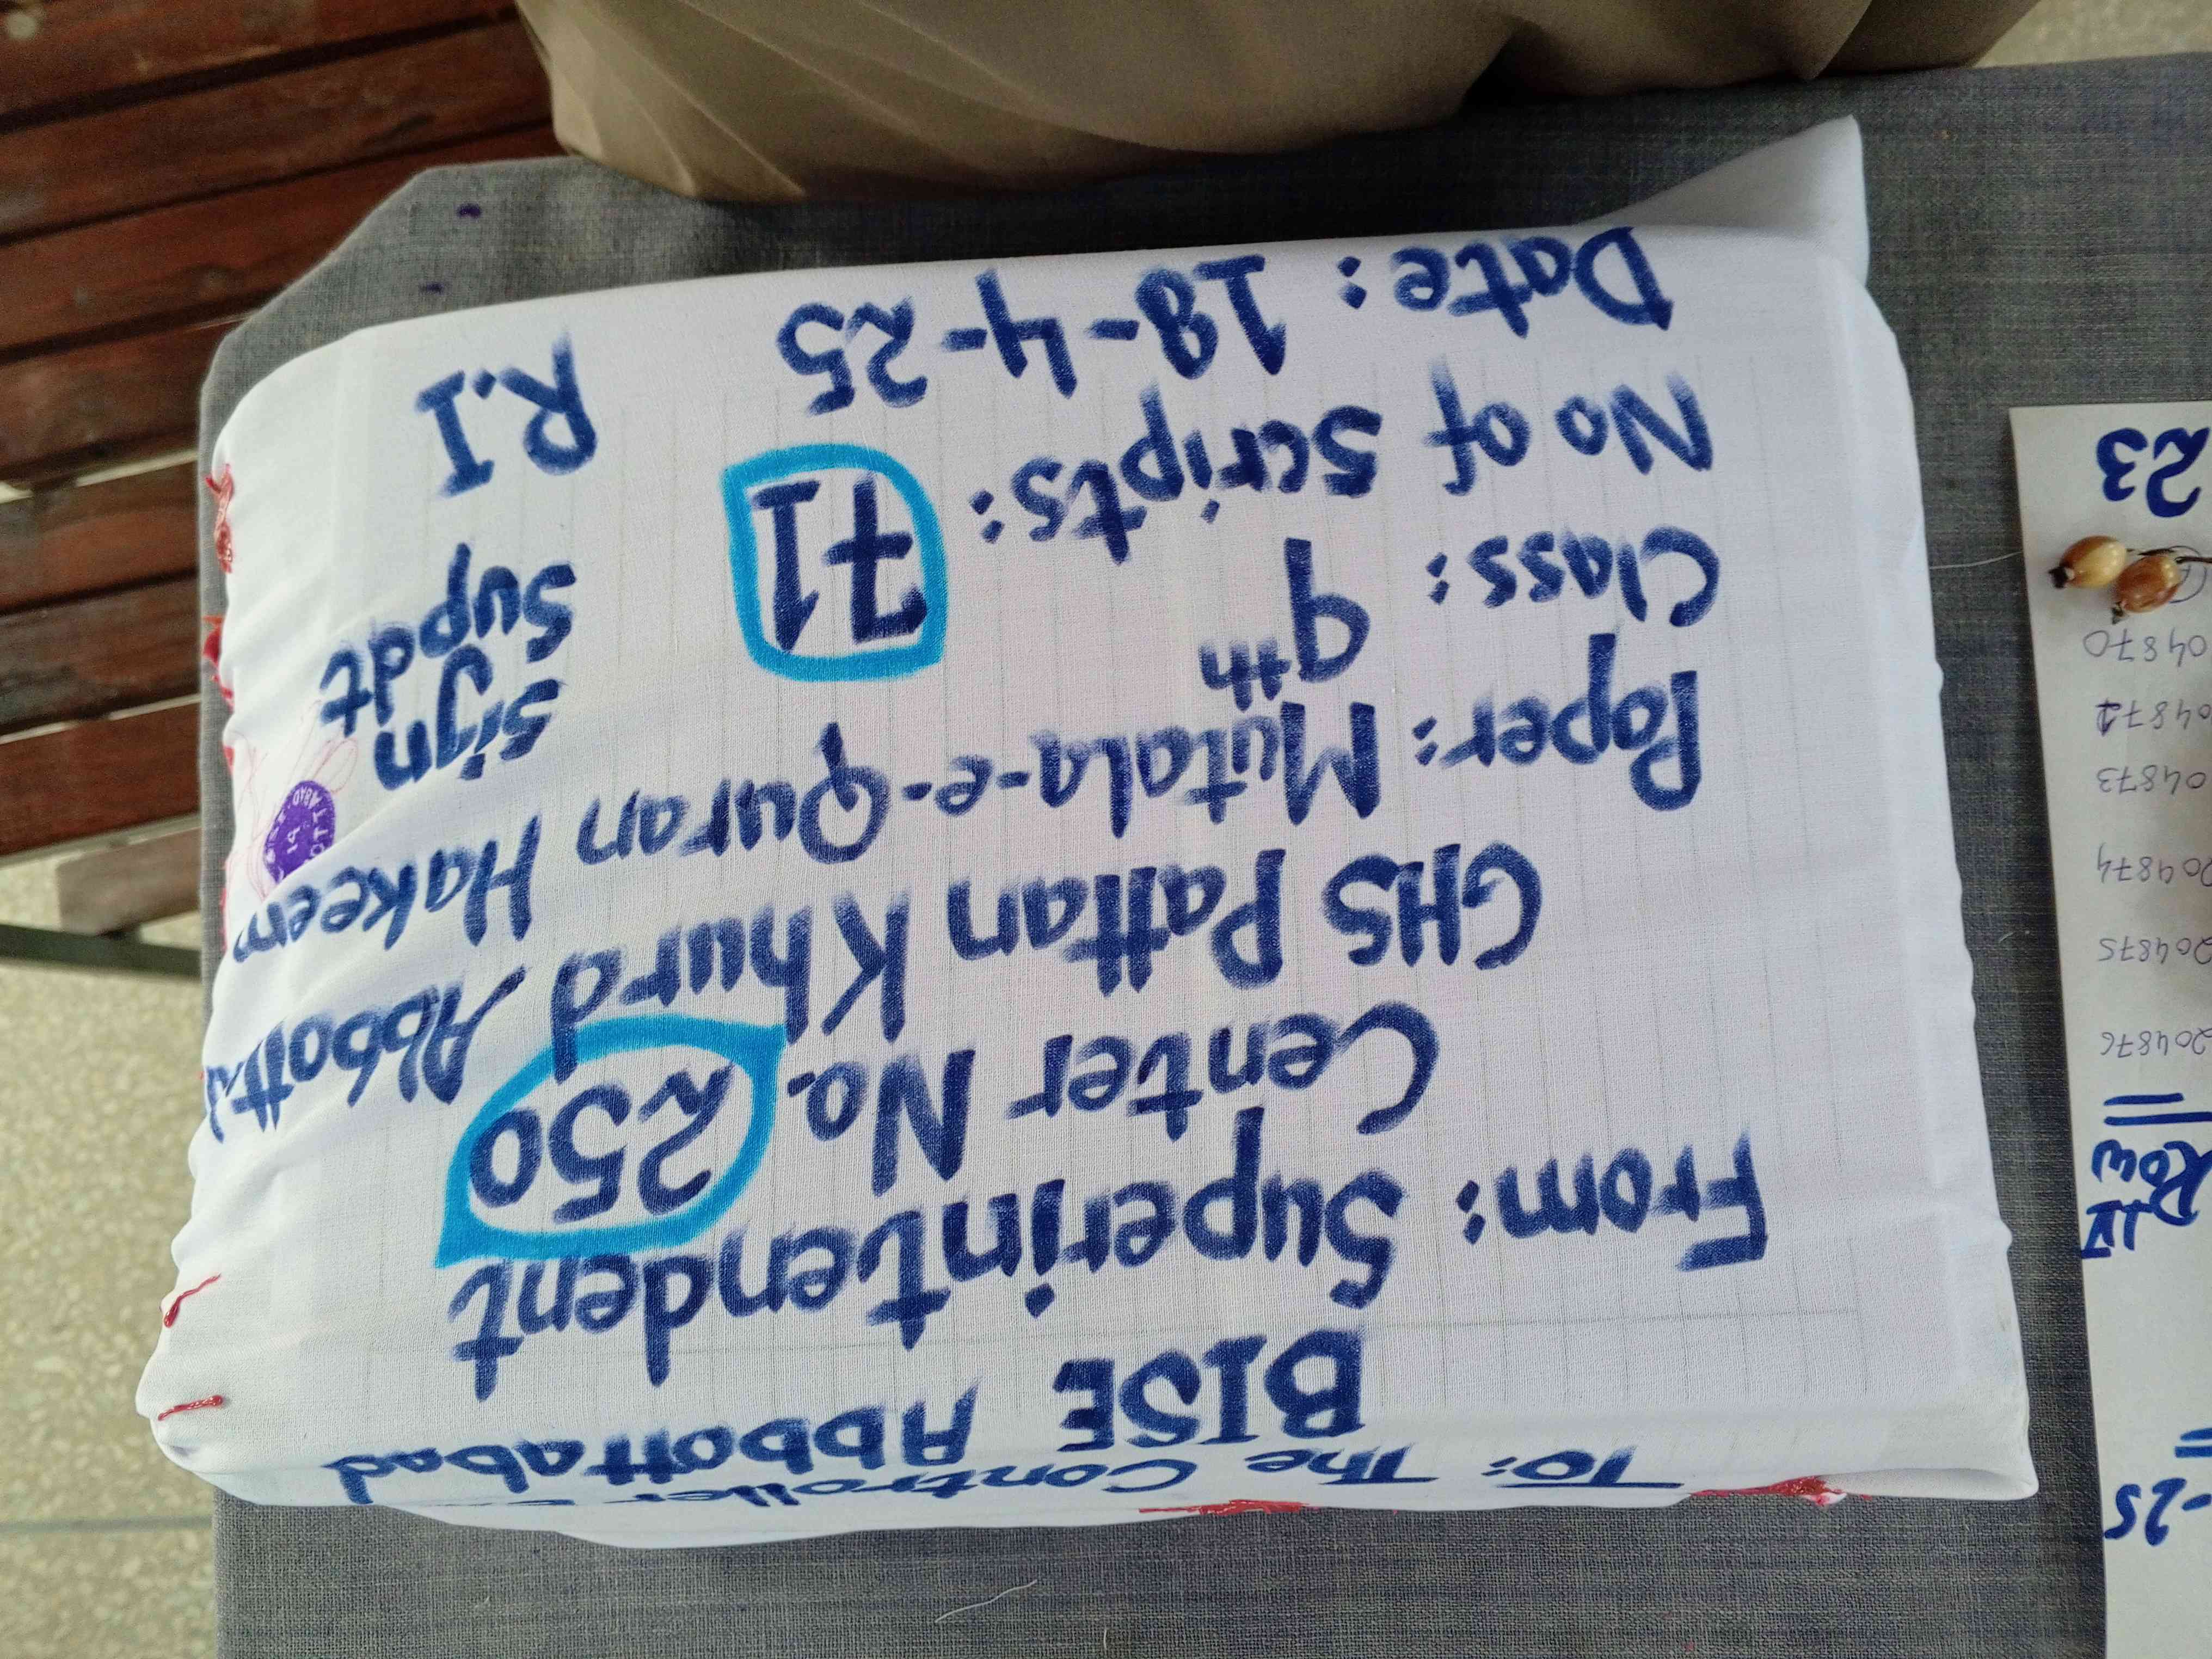 To: The Controller
BISE Abbottabad
From: Superintendent
Center No. 250
GHS Pattan Khurd Abbott
Paper: Mutala-e-Quran Hakeem
Class: 9th
No of Scripts: 71
Date: 18-4-25
sign
Supdt
R.I
-25
=
Row
=
204876
204875
204874
04873
04871
04870
23